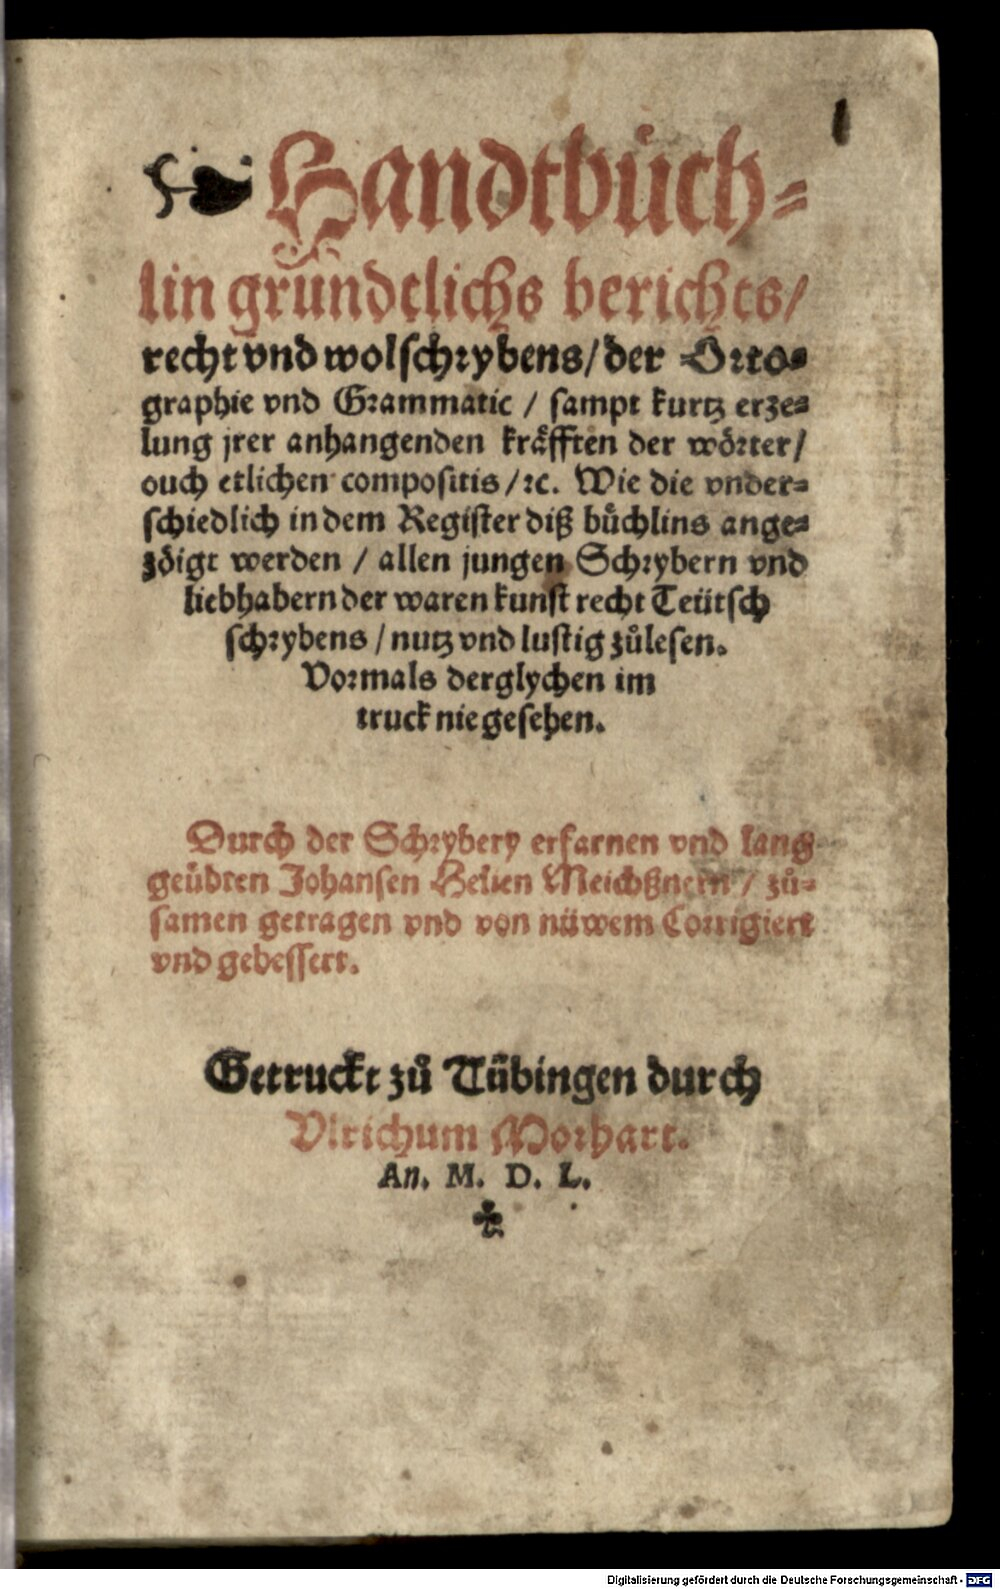 Handtbuͤch⸗
lin gründtlichs berichts/
recht vnd wolschrybens/der Orto⸗
graphie vnd Grammatic / sampt kurtz erze⸗
lung jrer anhangenden kraͤfften der woͤrter/
ouch etlichen compositis/ꝛc. Wie die vnder⸗
schiedlich in dem Register diß buͤchlins ange⸗
zoͤigt werden / allen jungen Schrybern vnd
liebhabern der waren kunst recht Teütsch
schrybens / nutz vnd lustig zuͦlesen.
Vormals derglychen im
truck nie gesehen.
Durch der Schrybery erfarnen vnd lang
geübten Johansen Helien Meichßnern / zuͦ⸗
samen getragen vnd von nüwem Corrigiert
vnd gebessert.
Getruckt zuͦ Tübingen durch
Vlrichum Morhart.
An. M. D. L.
1
Digitalisierung gefördert durch die Deutsche Forschungsgemeinschaft - DFG